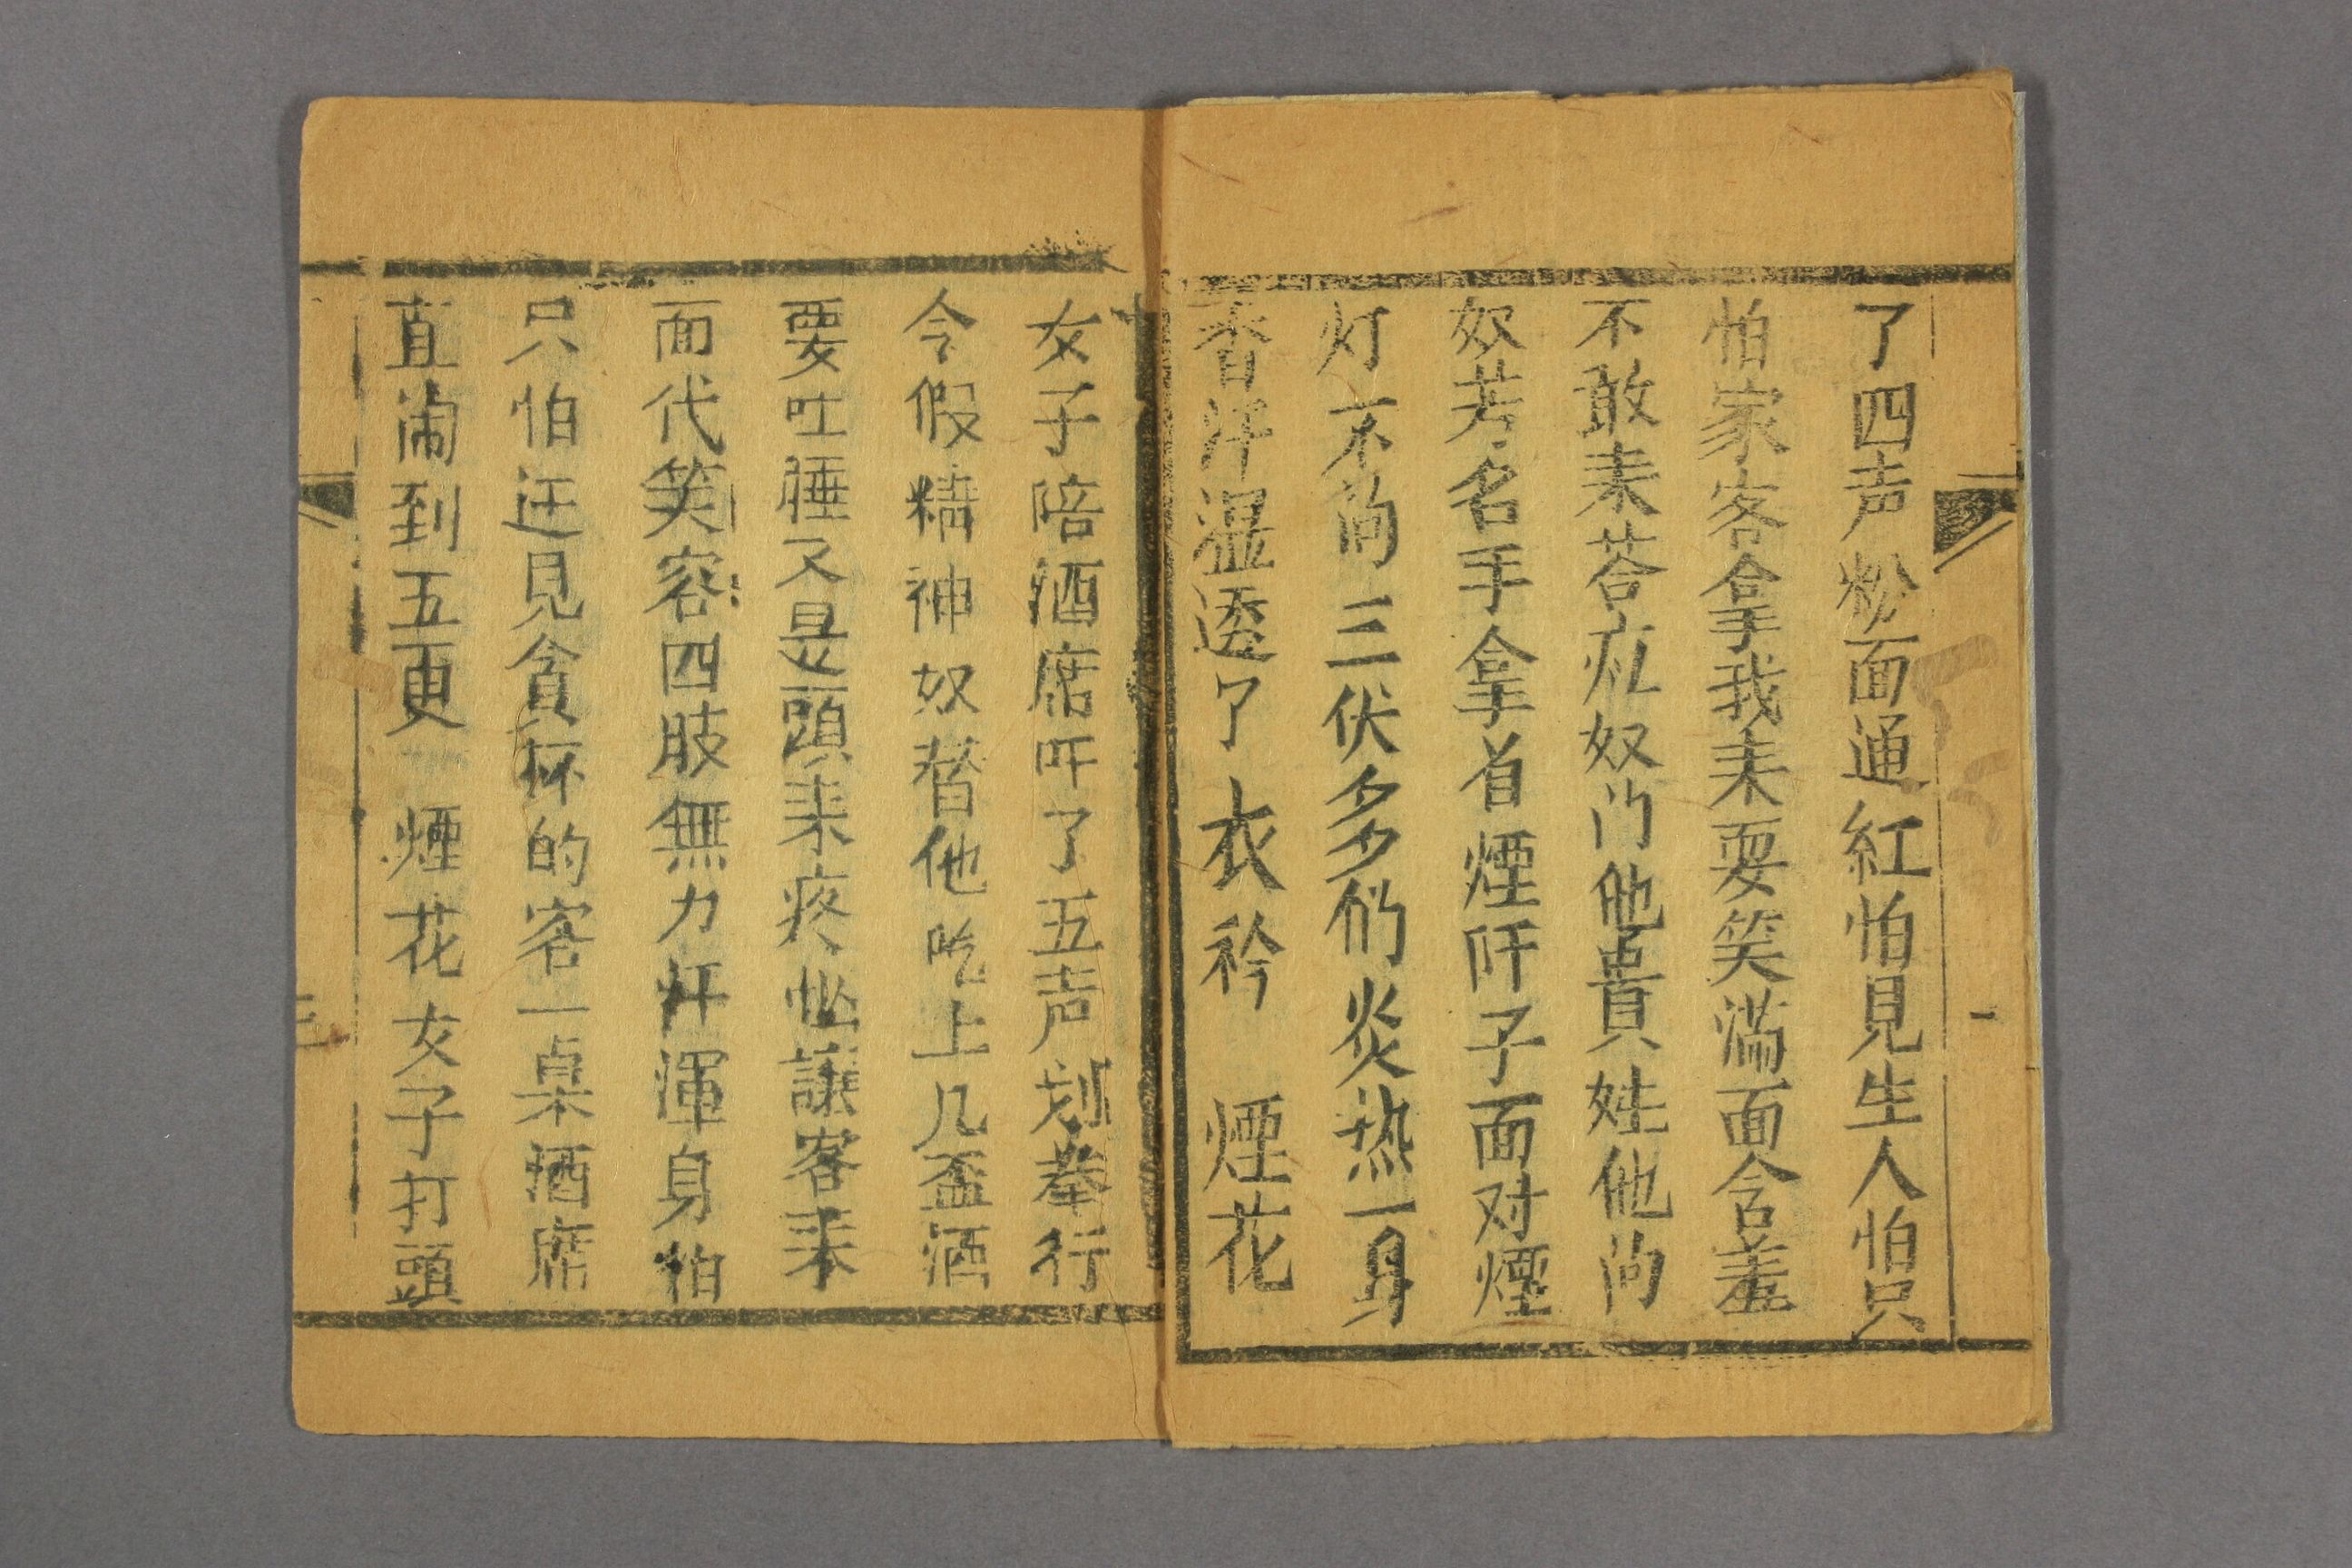 了四声粉面通紅怕見生人怕只
怕家客拿我耒耍笑滿面含羞
不敢耒荅奴门他貴姓他向
奴芳名手拿着煙阡子面对煙
灯不向三伏多们炎热一身
香汗湿透了衣衿 煙花
女子陪酒席吓了五声划拳行
令假精神奴替他吃上几盃酒
要吐睡又是頭来疼怺讓客耒
面代笑容四肢無力奸渾身怕
只怕迋見貪杯的客一桌酒席
直闹到五更 煙花女子打頭